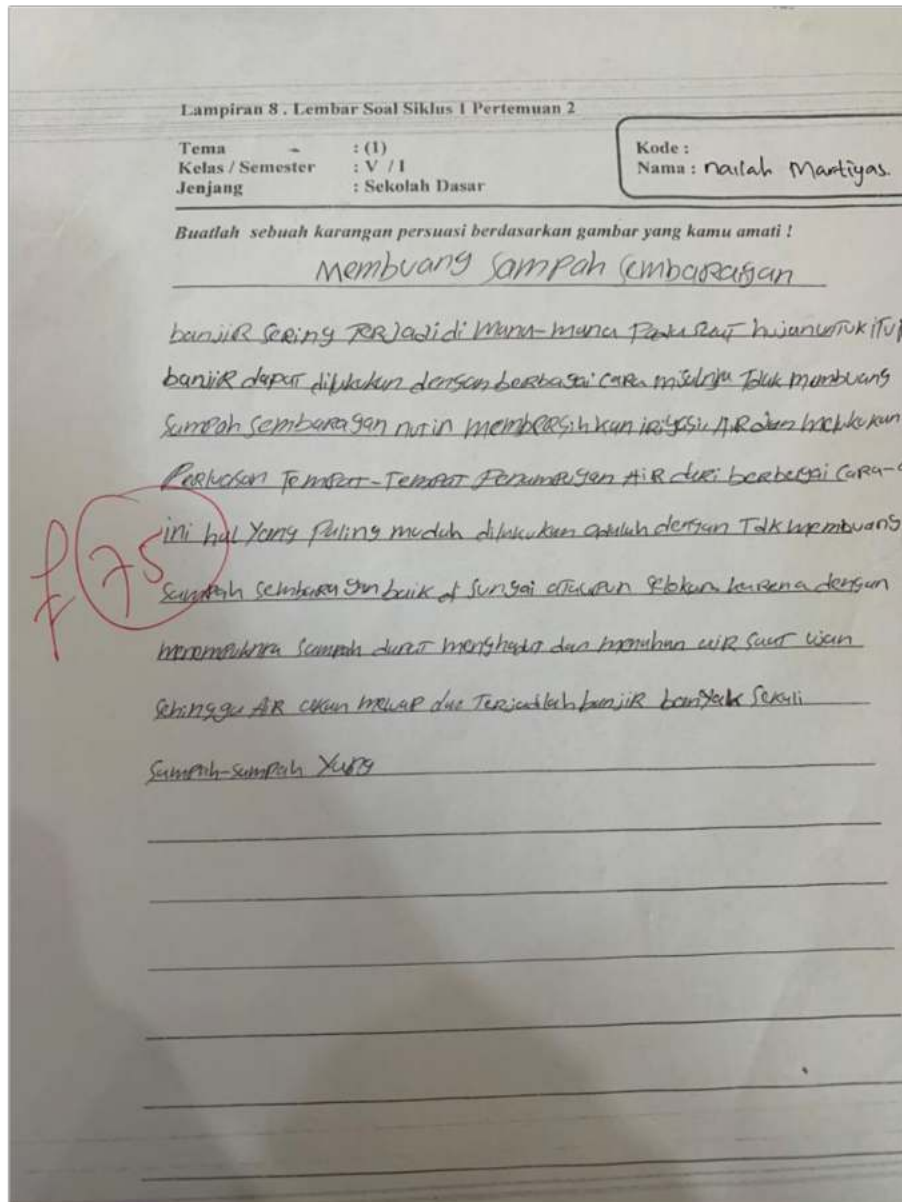 Lampiran 8 . Lembar Soal Siklus 1 Pertemuan 2
Tema : (1)
Kelas / Semester : V / I
Jenjang : Sekolah Dasar
Kode :
Nama : nailah Martiyas.
Buatlah sebuah karangan persuasi berdasarkan gambar yang kamu amati !
Membuang Sampah Sembaragan
banjiR SeRing TeRjadi di Mana-mana Pada Saat hujan unTuk iTu
banjiR dapaT dilakukan dengan beRbagai CaRa misalnya Tidak membuang
Sampah Sembaragan RuTin membeRsihkan iRigasi AiR dan melakukan
PeRluasan TempaT-TempaT Penampungan AiR daRi beRbagai CaRa-
ini hal Yang Paling mudah dilakukan adalah dengan Tdk membuang
Sampah Sembaragan baik di Sungai aTaupun Selokan kaRena dengan
Sampah dapaT dan menahan aiR SaaT
Sehingga AiR akan dan TeRjadilah banjiR banYak Sekali
Sampah-Sampah Yang
75